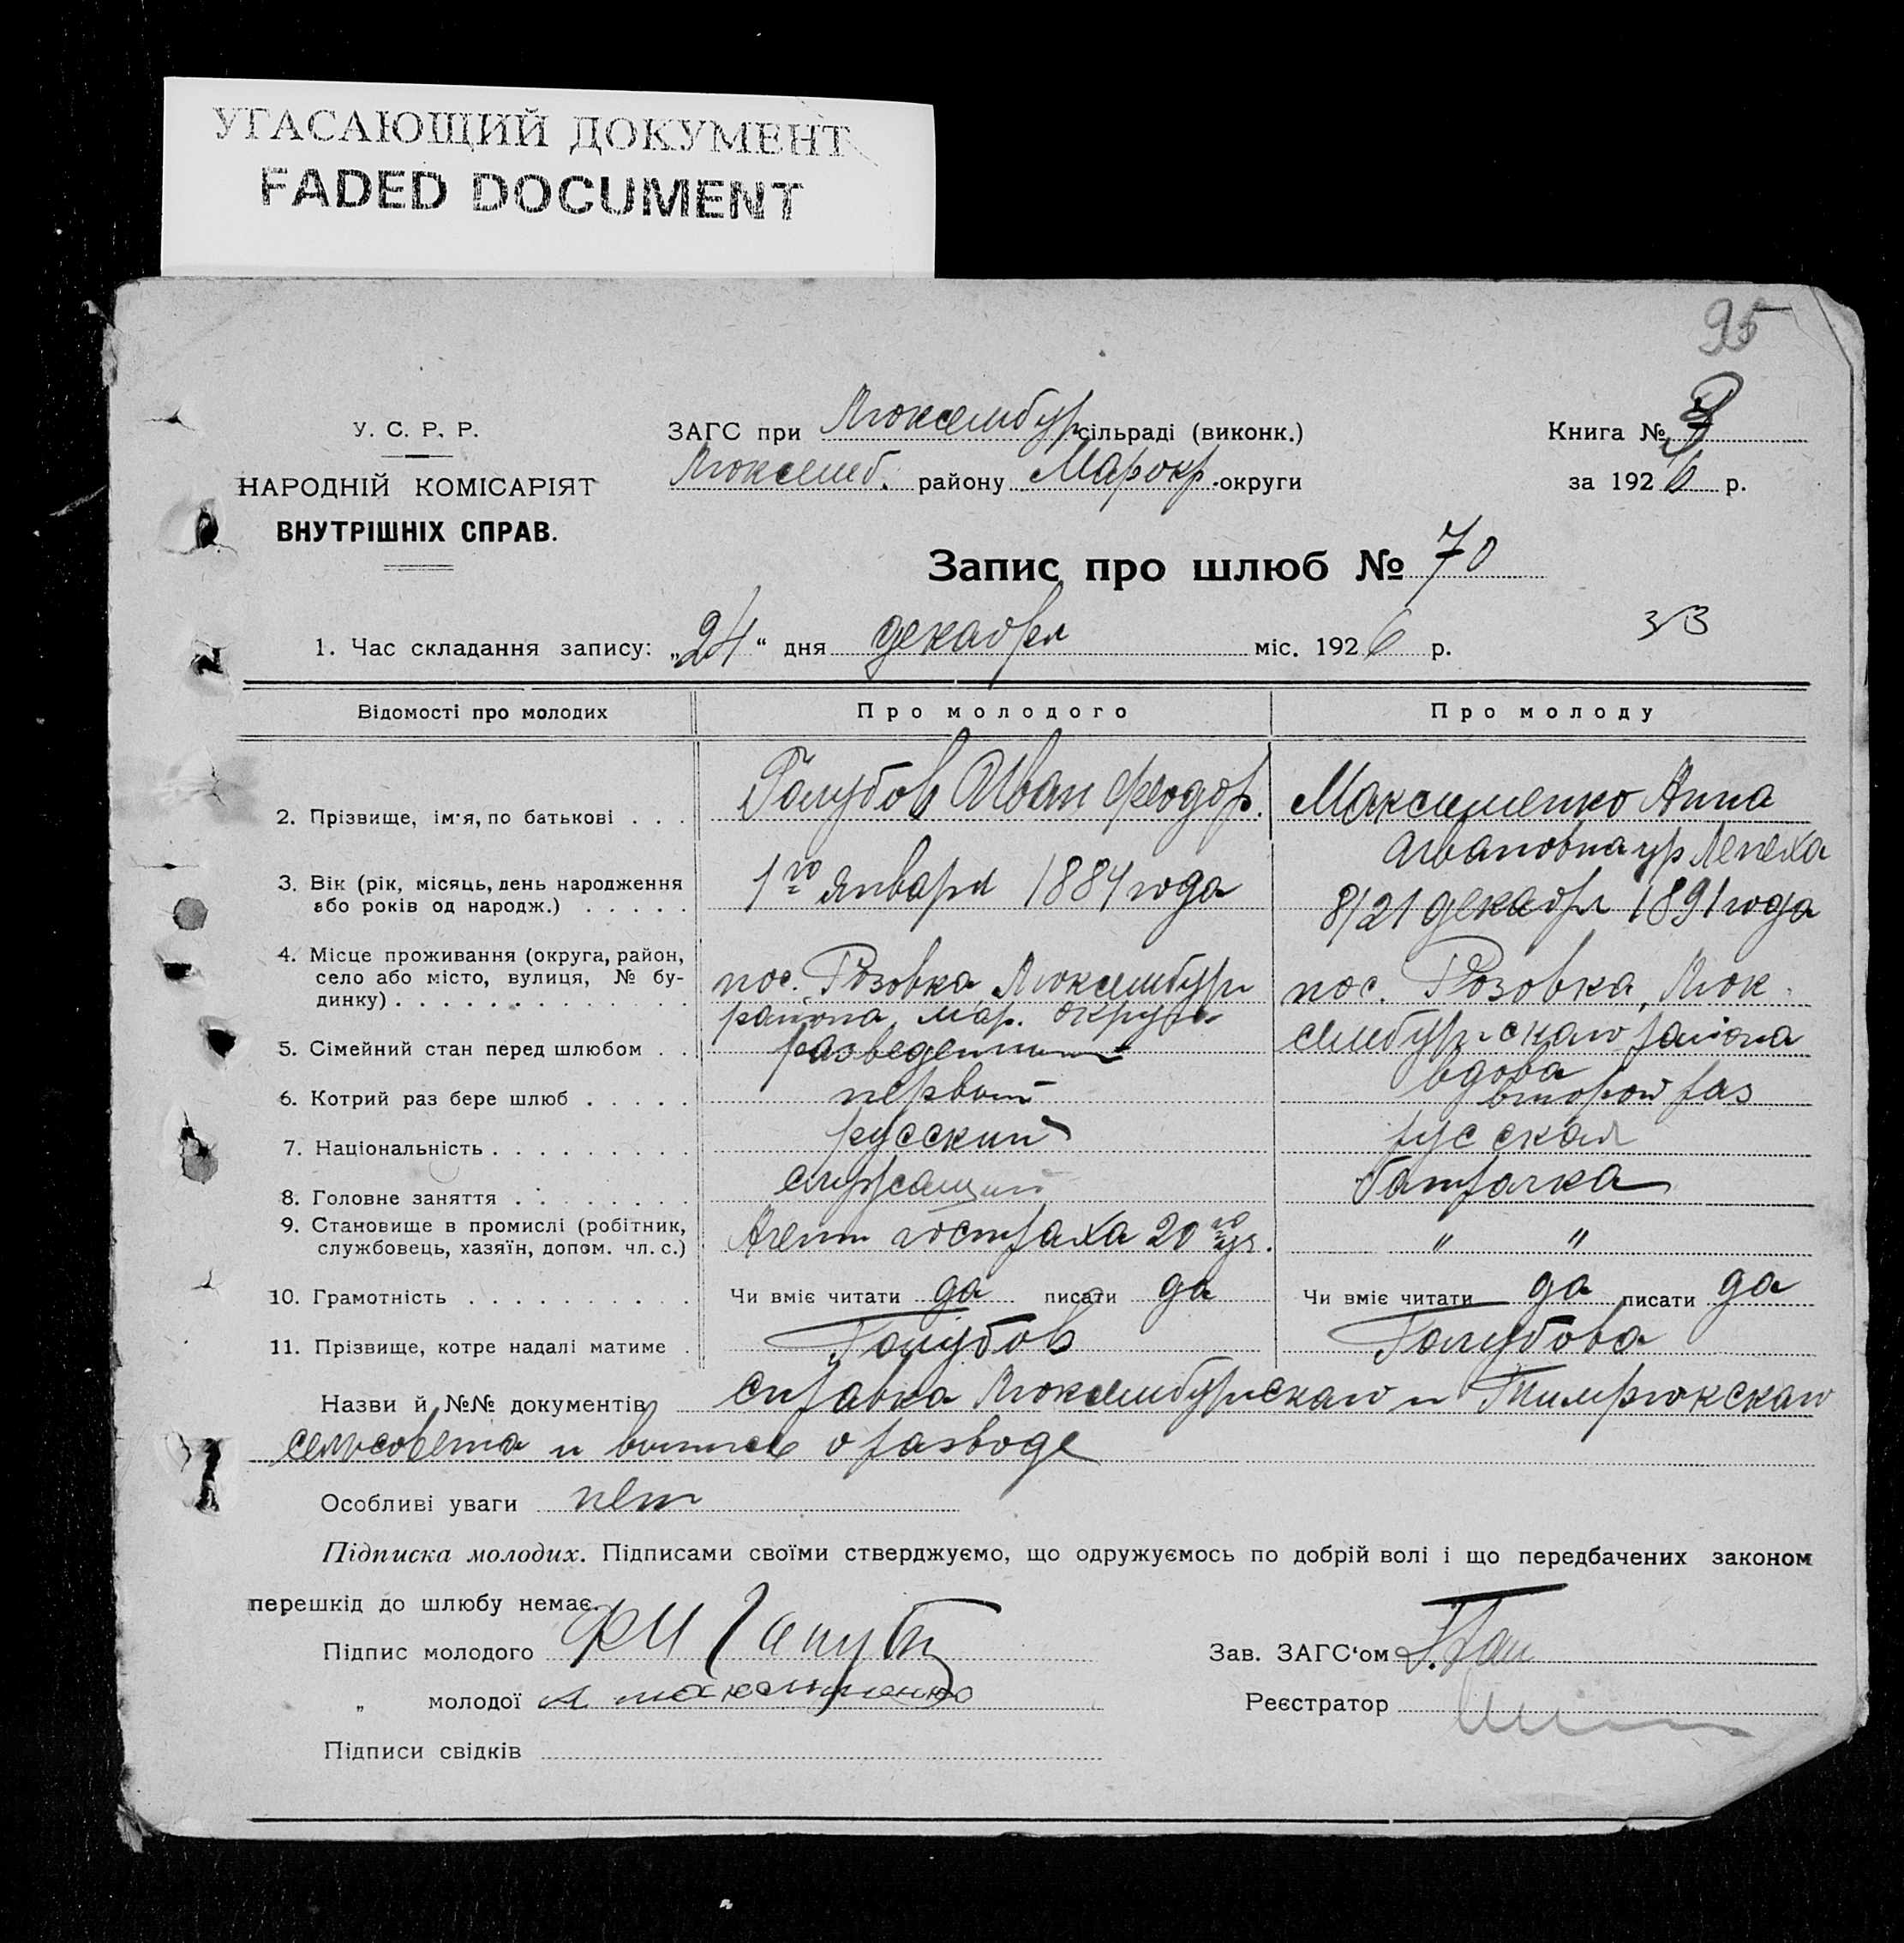 УГАСАЮЩИЙ ДОКУМЕНТ
FADED DOCUMENT
95
У. С. Р. Р.
НАРОДНІЙ КОМІСАРІЯТ
ВНУТРІШНІХ СПРАВ.
ЗАГС при Люксембург сільраді (виконк.)
Люксемб. району Марокр. округи
Книга №
за 1926 р.
Запис про шлюб № 70
1. Час складання запису: „24“ дня декабря міс. 1926 р.
Відомості про молодих
Про молодого
Про молоду
2. Прізвище, ім'я, по батькові . . .
Голубов Иван Феодор.
Максименко Анна
Ивановна ур Лепеха
3. Вік (рік, місяць, день народження
або років од народж.) . . . . .
1го января 1884 года
8/21 декабря 1891 года
4. Місце проживання (округа, район,
село або місто, вулиця, № бу-
динку) . . . . . . . . . . . . .
пос. Розовка Люксембург
района, мар. округа
пос. Розовка, Люк-
сембургскаго района
5. Сімейний стан перед шлюбом . .
разведенный
вдова
6. Котрий раз бере шлюб . . . . .
первый
второй раз
7. Національність . . . . . . . . .
русский
русская
8. Головне заняття . . . . . . . .
служащий
батрачка
9. Становище в промислі (робітник,
службовець, хазяїн, допом. чл. с.)
Агент госстраха 20го уч.
" "
10. Грамотність . . . . . . . . . .
Чи вміє читати да писати да
Чи вміє читати да писати да
11. Прізвище, котре надалі матиме .
Голубов
Голубова
Назви й №№ документів справка Люксембургскаго и Темрюкскаго
сельсовета и выпись о разводе
Особливі уваги нет
Підписка молодих. Підписами своїми стверджуємо, що одружуємось по добрій волі і що передбачених законом
перешкід до шлюбу немає.
Підпис молодого
Зав. ЗАГС‘ом
„ молодої А максименко
Реєстратор
Підписи свідків